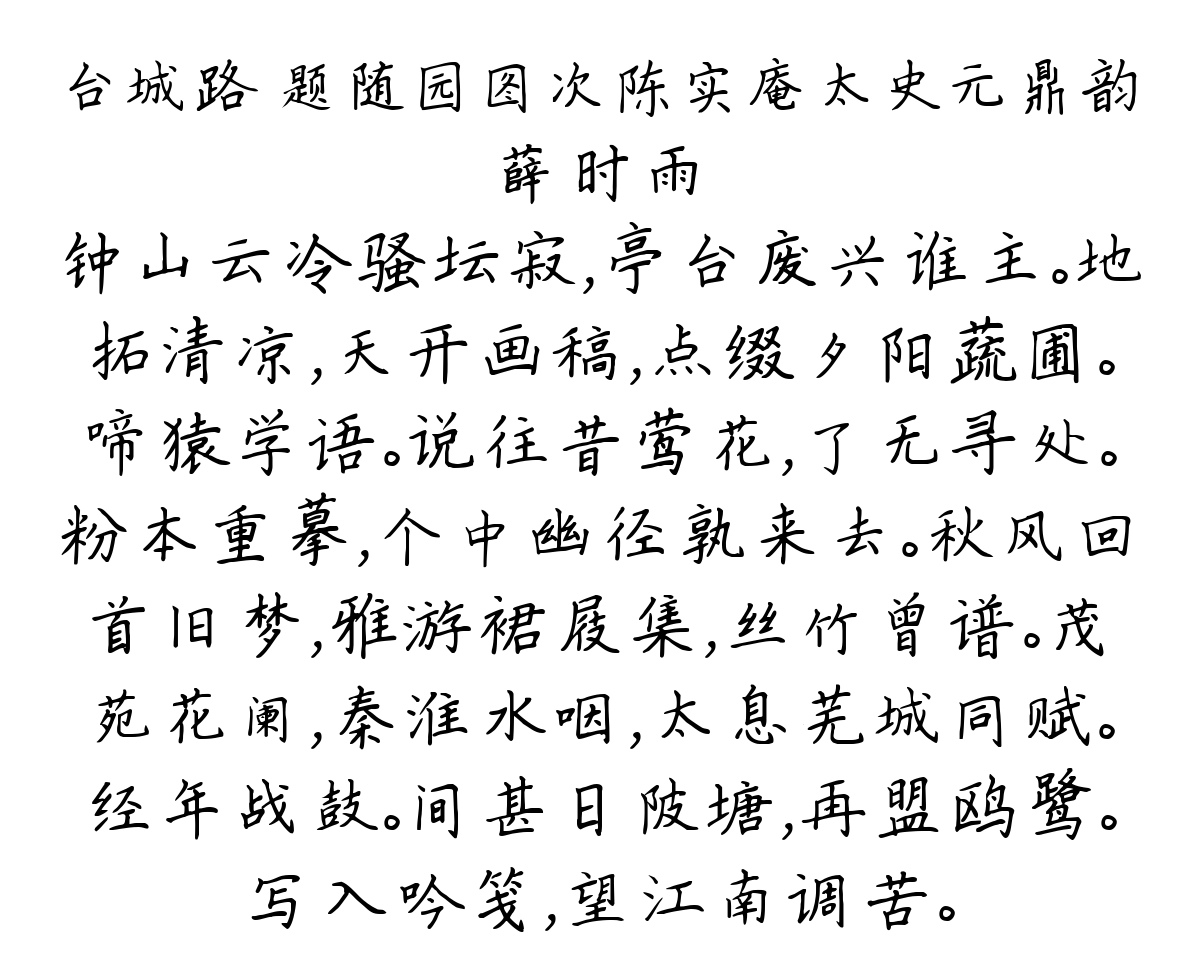 台城路 题随园图次陈实庵太史元鼎韵
薛时雨
钟山云冷骚坛寂,亭台废兴谁主。地
拓清凉,天开画稿,点缀夕阳蔬圃。
啼猿学语。说往昔莺花,了无寻处。
粉本重摹,个中幽径孰来去。秋风回
首旧梦,雅游裙屐集,丝竹曾谱。茂
苑花阑,秦淮水咽,太息芜城同赋。
经年战鼓。间甚日陂塘,再盟鸥鹭。
写入吟笺,望江南调苦。